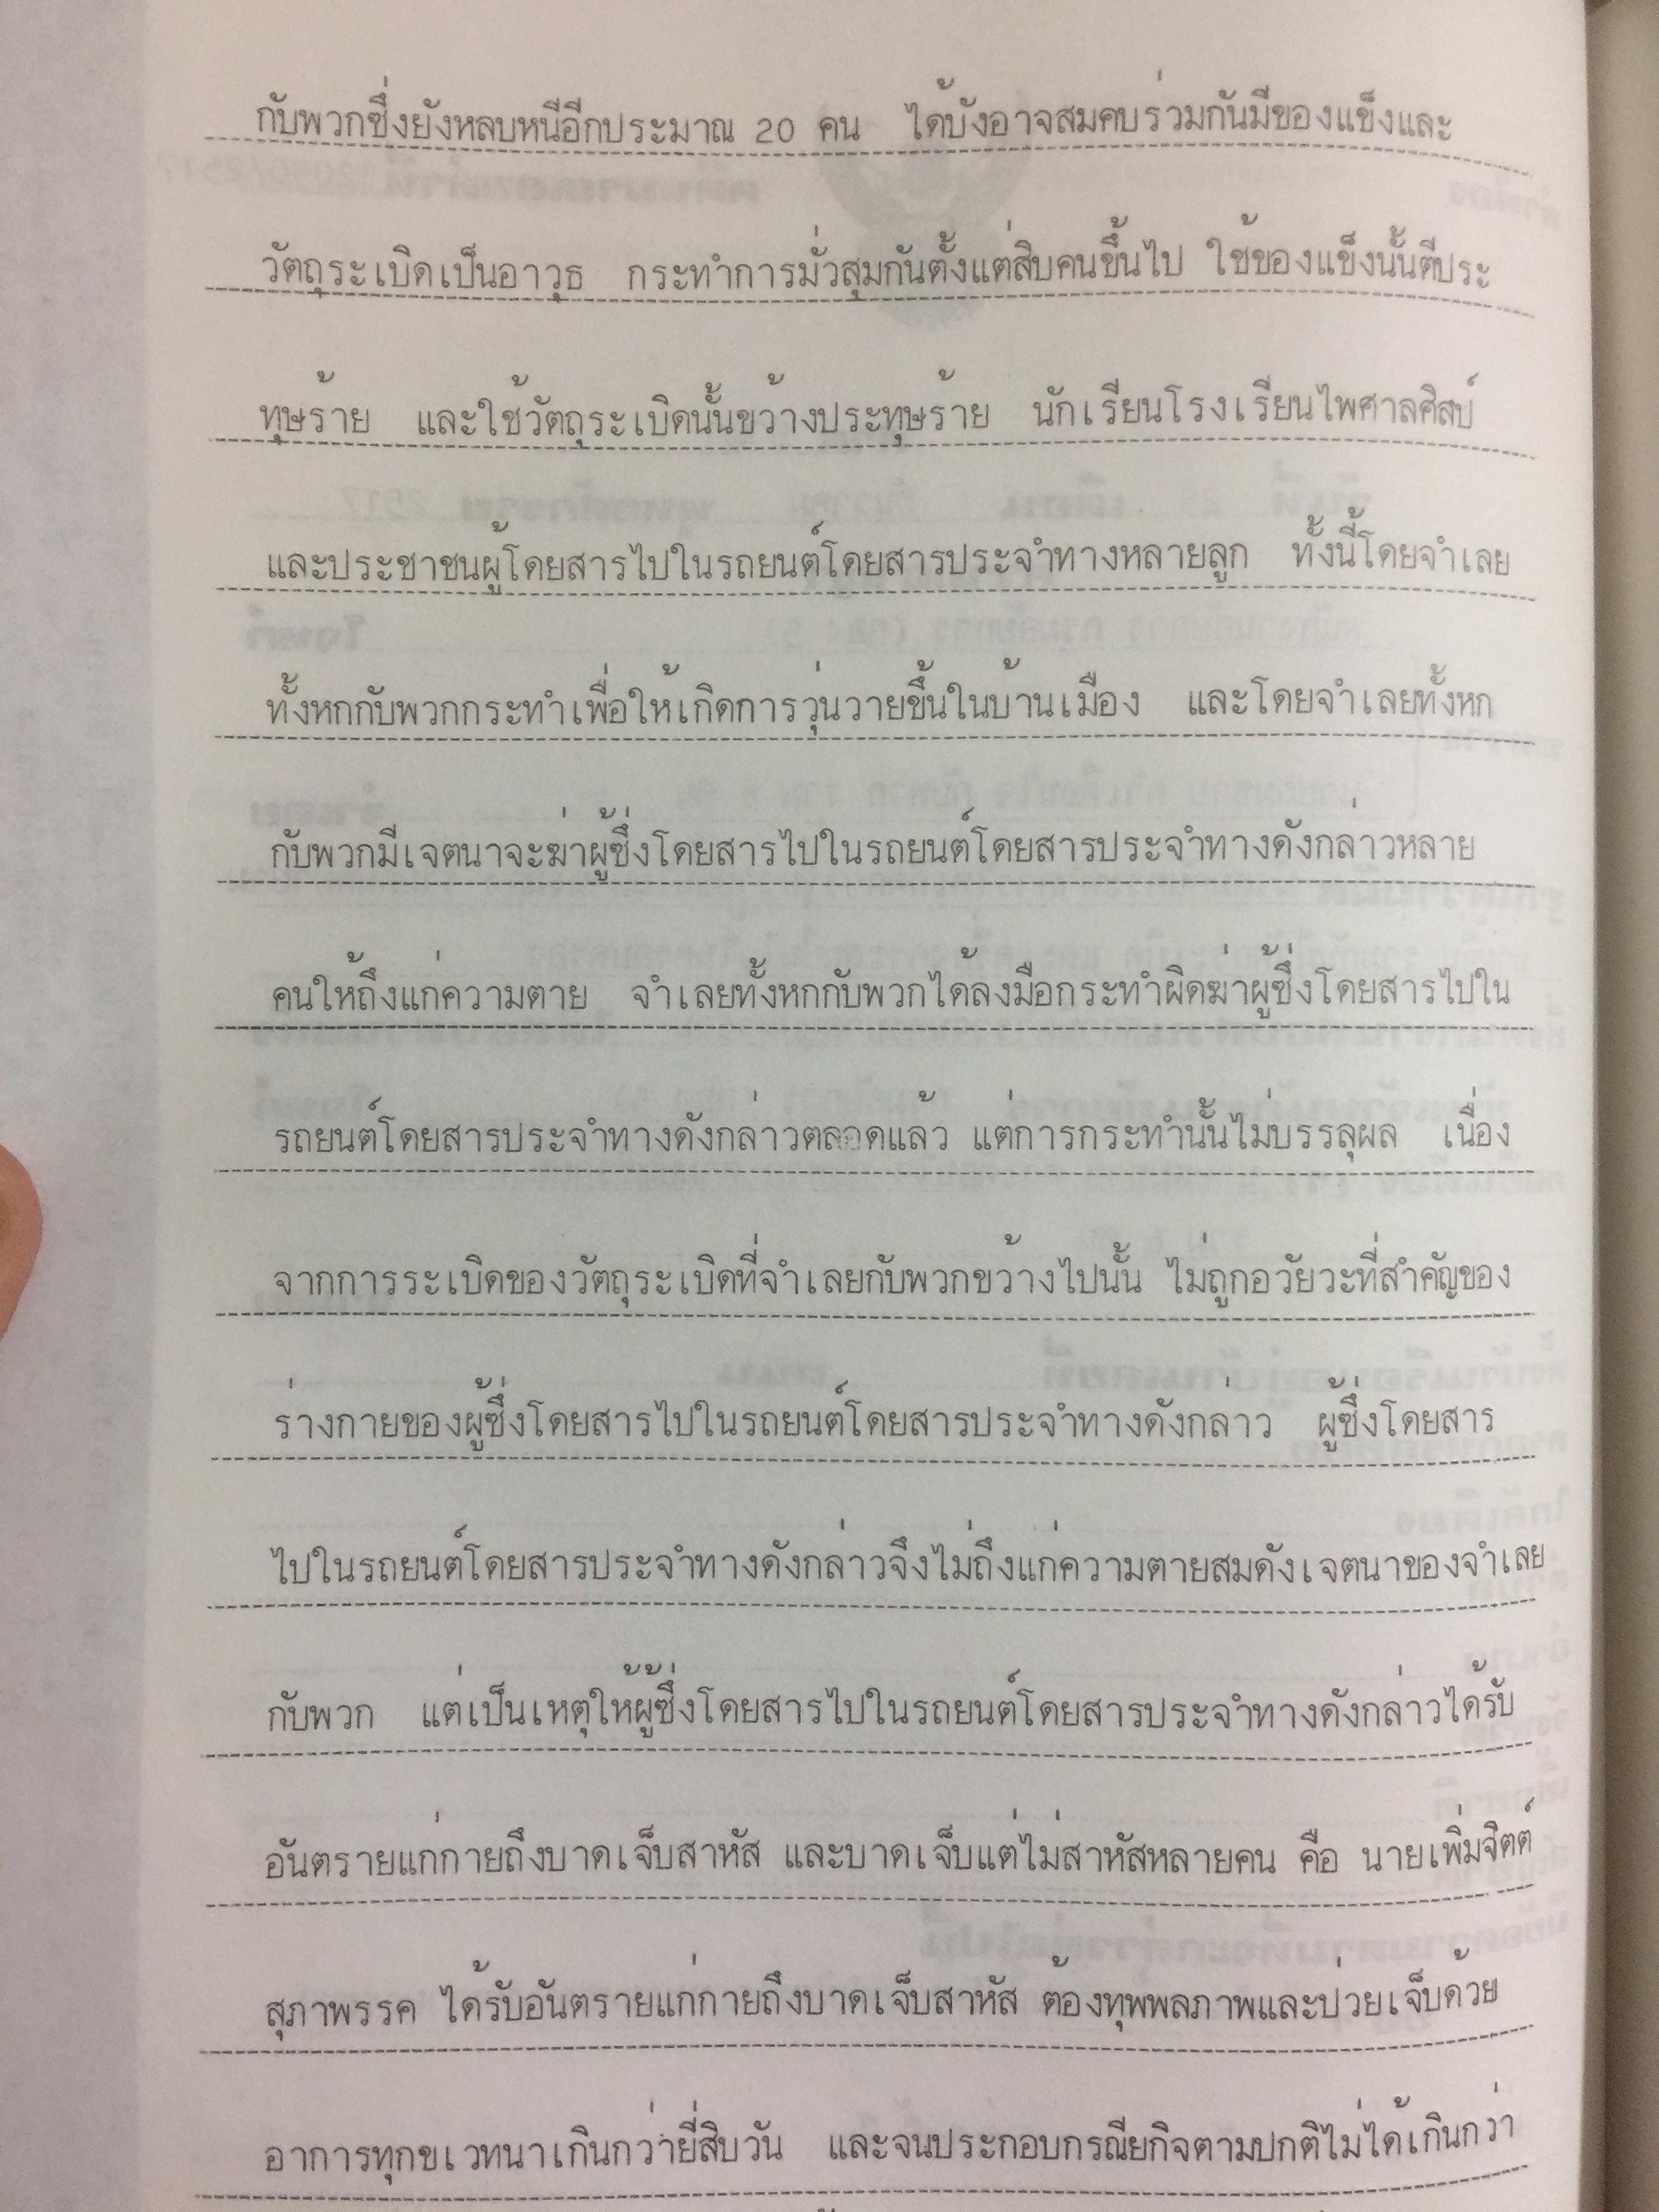 กับพวกซึ่งยังหลบหนีอีกประมาณ 20 คน ได้บังอาจสมคบร่วมกันมีของแข็งและ
วัตถุระเบิดเป็นอาวุธ กระทำการมั่วสุมกันตั้งแต่สิบคนขึ้นไป ใช้ของแข็งนั้นตีประ
ทุษร้าย และใช้วัตถุระเบิดนั้นขว้างประทุษร้าย นักเรียนโรงเรียนไพศาลศิลป์
และประชาชนผู้โดยสารไปในรถยนต์โดยสารประจำทางหลายลูก ทั้งนี้โดยจำเลย
ทั้งหกกับพวกกระทำเพื่อให้เกิดการวุ่นวายขึ้นในบ้านเมือง และโดยจำเลยทั้งหก
กับพวกมีเจตนาจะฆ่าผู้ซึ่งโดยสารไปในรถยนต์โดยสารประจำทางดังกล่าวหลาย
คนให้ถึงแก่ความตาย จำเลยทั้งหกกับพวกได้ลงมือกระทำผิดฆ่าผู้ซึ่งโดยสารไปใน
รถยนต์โดยสารประจำทางดังกล่าวตลอดแล้ว แต่การกระทำนั้นไม่บรรลุผล เนื่อง
จากการระเบิดของวัตถุระเบิดที่จำเลยกับพวกขว้างไปนั้น ไม่ถูกอวัยวะที่สำคัญของ
ร่างกายของผู้ซึ่งโดยสารไปในรถยนต์โดยสารประจำทางดังกล่าว ผู้ซึ่งโดยสาร
ไปในรถยนต์โดยสารประจำทางดังกล่าวจึงไม่ถึงแก่ความตายสมดังเจตนาของจำเลย
กับพวก แต่เป็นเหตุให้ผู้ซึ่งโดยสารไปในรถยนต์โดยสารประจำทางดังกล่าวได้รับ
อันตรายแก่กายถึงบาดเจ็บสาหัส และบาดเจ็บแต่ไม่สาหัสหลายคน คือ นายเพิ่มจิตต์
สุภาพรรค ได้รับอันตรายแก่กายถึงบาดเจ็บสาหัส ต้องทุพพลภาพและป่วยเจ็บด้วย
อาการทุกขเวทนาเกินกว่ายี่สิบวัน และจนประกอบกรณียกิจตามปกติไม่ได้เกินกว่า